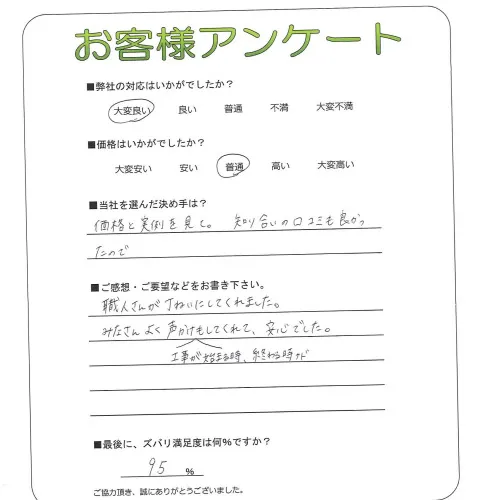 お客様アンケート
■弊社の対応はいかがでしたか？
大変良い 良い 普通 不満 大変不満
■価格はいかがでしたか？
大変安い 安い 普通 高い 大変高い
■当社を選んだ決め手は？
価格と実例を見て。 知り合いの口コミも良かっ
たので
■ご感想・ご要望などをお書き下さい。
職人さんが丁ねいにしてくれました。
みなさんよく声かけもしてくれて、安心でした。
工事が始まる時、終わる時など
■最後に、ズバリ満足度は何％ですか？
95 %
ご協力頂き、誠にありがとうございました。